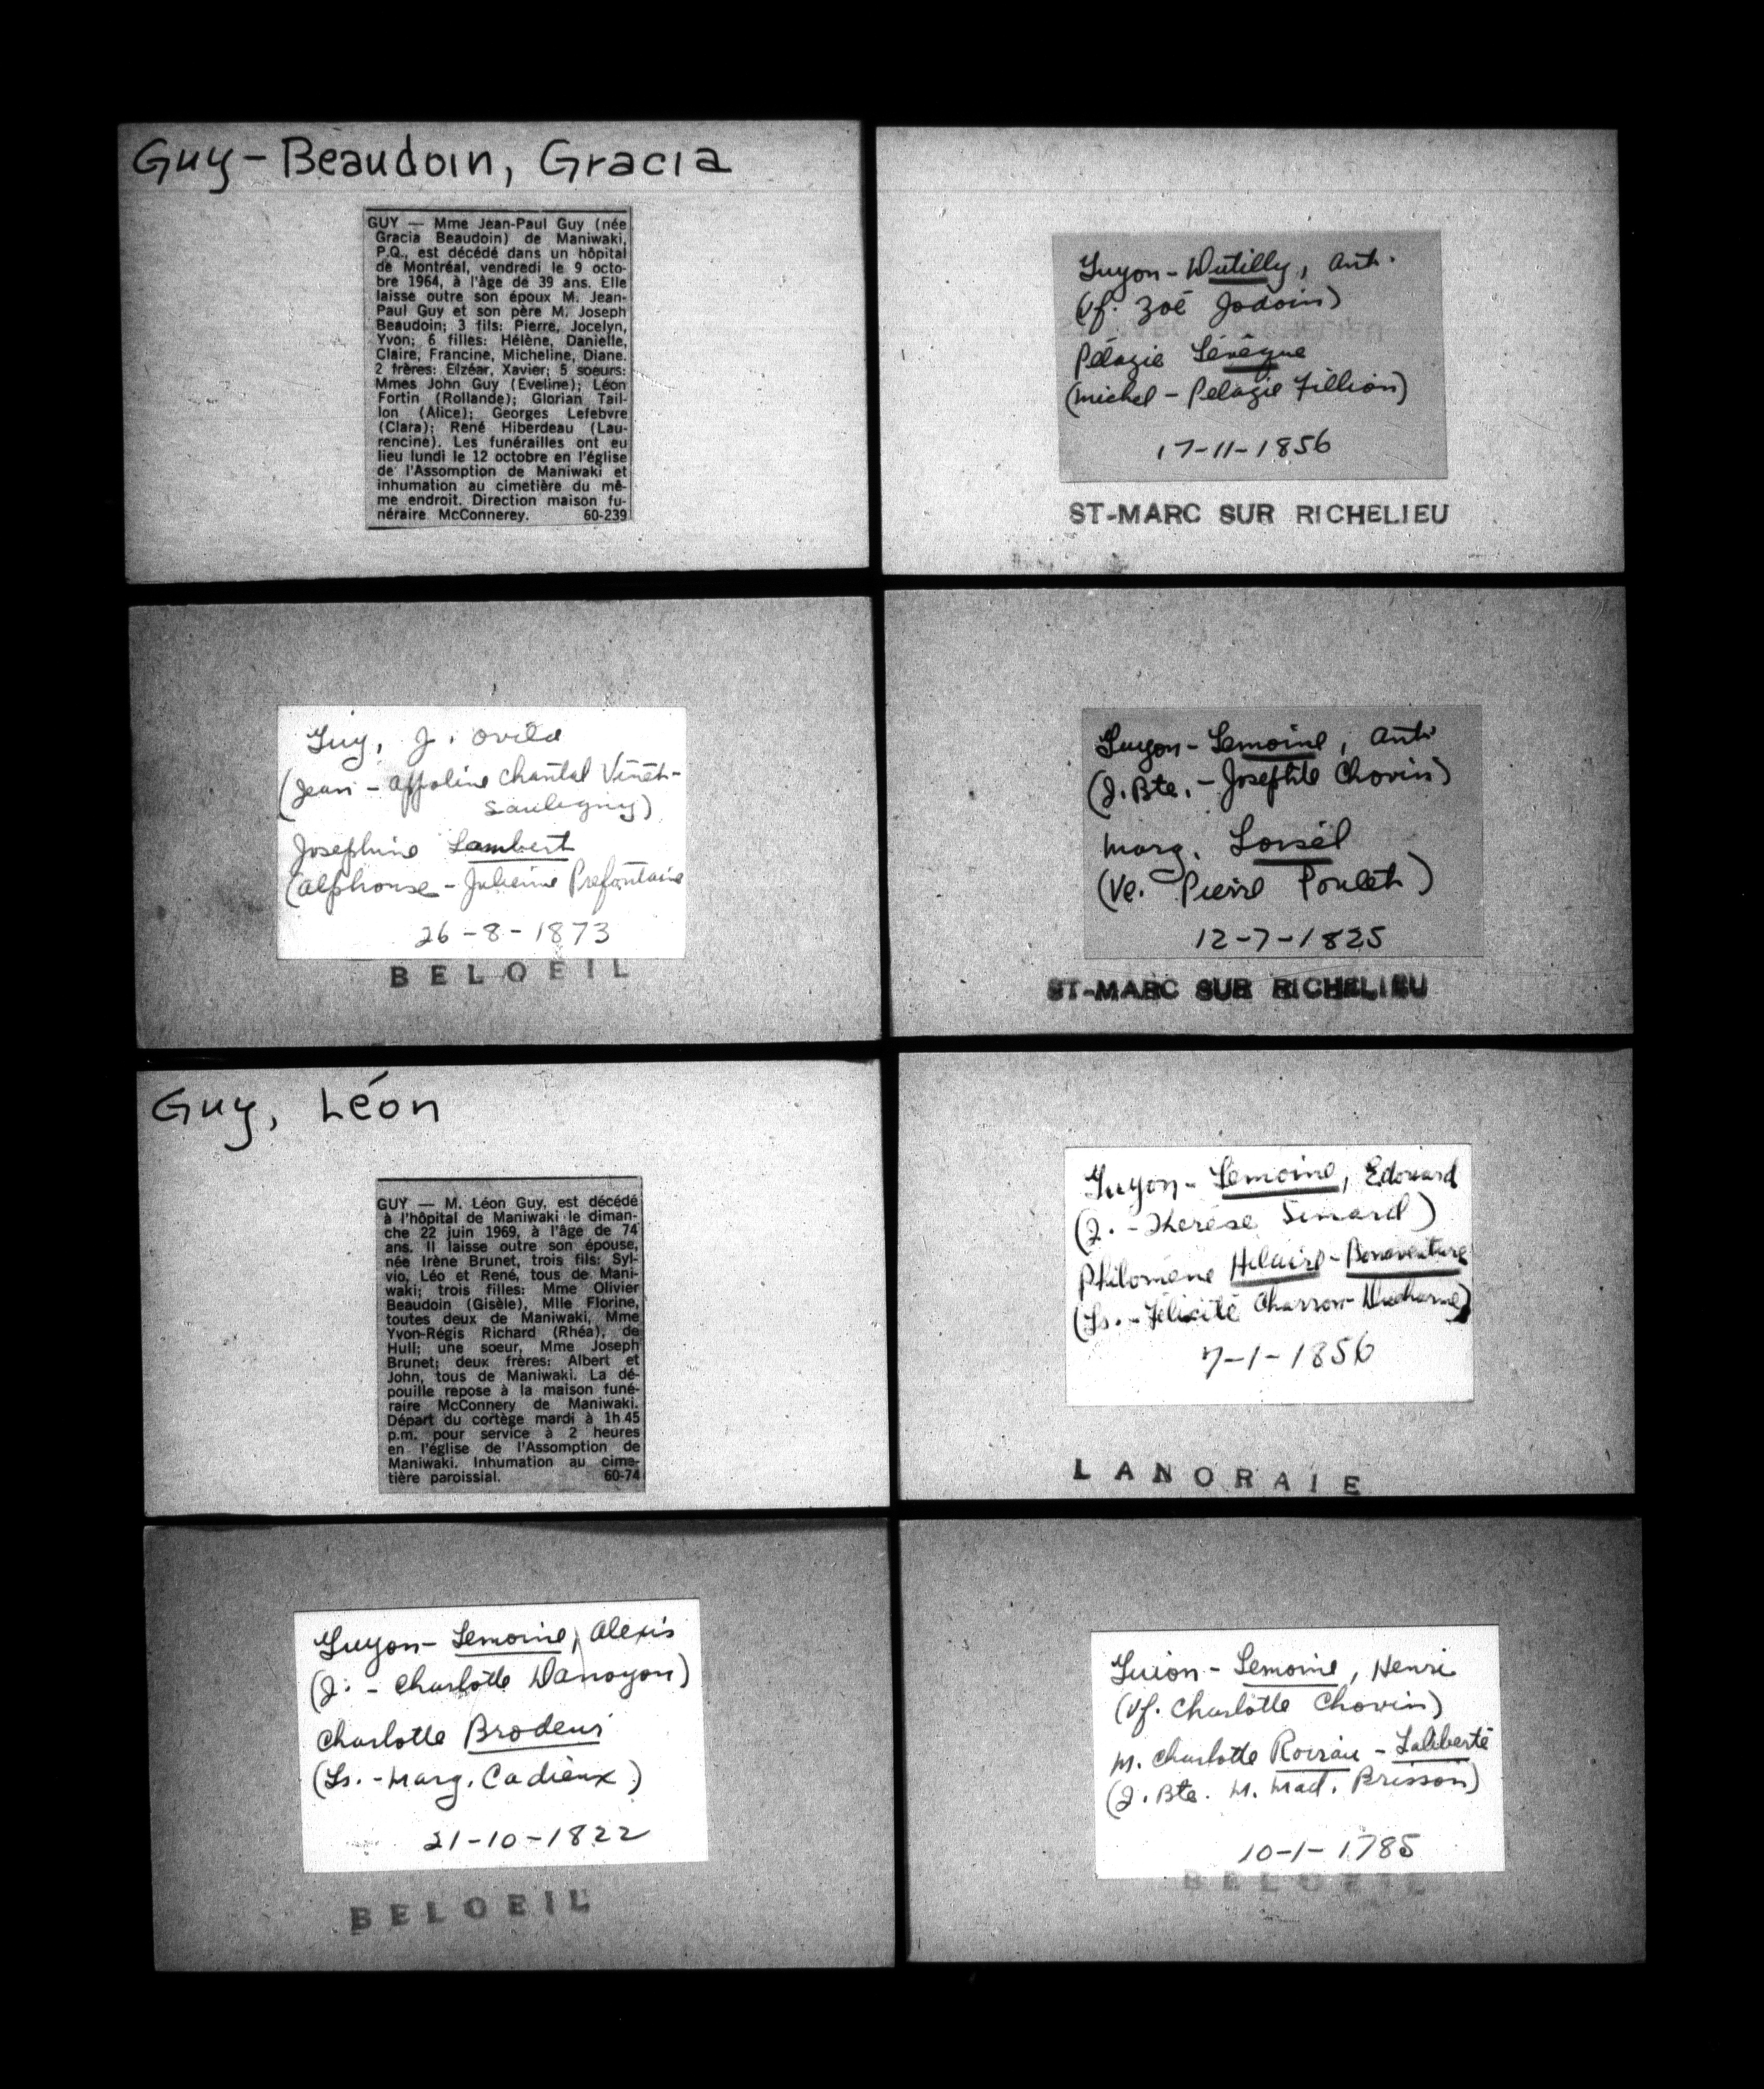 Guy-Beaudoin, Gracia
GUY — Mme Jean-Paul Guy (née
Gracia Beaudoin) de Maniwaki,
P.Q., est décédé dans un hôpital
de Montréal, vendredi le 9 octo-
bre 1964, à l'âge de 39 ans. Elle
laisse outre son époux M. Jean-
Paul Guy et son père M. Joseph
Beaudoin; 3 fils: Pierre, Jocelyn,
Yvon; 6 filles: Hélène, Danielle,
Claire, Francine, Micheline, Diane.
2 frères: Elzéar, Xavier; 5 soeurs:
Mmes John Guy (Eveline); Léon
Fortin (Rollande); Glorian Tail-
lon (Alice); Georges Lefebvre
(Clara); René Hiberdeau (Lau-
rencine). Les funérailles ont eu
lieu lundi le 12 octobre en l'église
de l'Assomption de Maniwaki et
inhumation au cimetière du mê-
me endroit. Direction maison fu-
néraire McConnerey. 60-239
Guy, J. Ovila
(Jean - Appoline Chantal Vinet-
Souligny)
Josephine Lambert
(Alphonse - Julienne Prefontaine
26-8-1873
BELOEIL
Guy, Léon
GUY — M. Léon Guy, est décédé
à l'hôpital de Maniwaki le diman-
che 22 juin 1969, à l'âge de 74
ans. Il laisse outre son épouse,
née Irène Brunet, trois fils: Syl-
vio, Léo et René, tous de Mani-
waki; trois filles: Mme Olivier
Beaudoin (Gisèle), Mlle Florine,
toutes deux de Maniwaki, Mme
Yvon-Régis Richard (Rhéa), de
Hull; une soeur, Mme Joseph
Brunet; deux frères: Albert et
John, tous de Maniwaki. La dé-
pouille repose à la maison funé-
raire McConnery de Maniwaki.
Départ du cortège mardi à 1h.45
p.m. pour service à 2 heures
en l'église de l'Assomption de
Maniwaki. Inhumation au cime-
tière paroissial. 60-74
Guyon-Lemoine, Alexis
(J. - Charlotte Danoyon)
Charlotte Brodeur
(Ls. - Marg. Cadieux)
21-10-1822
BELOEIL
Guyon-Dutilly, Ant.
(Vf. Zoé Jodoin)
Pélagie Lévêque
(Michel - Pelagie Fillion)
17-11-1856
ST-MARC SUR RICHELIEU
Guyon-Lemoine, Ant.
(J.Bte. - Josephte Chovin)
Marg. Loisel
(Ve. Pierre Poulet)
12-7-1825
ST-MARC SUR RICHELIEU
Guyon-Lemoine, Edouard
(J. - Therèse Simard)
Philomène Hilaire-Bonaventure
(Ls. - Félicité Charron-Ducharme)
7-1-1856
LANORAIE
Guion-Lemoine, Henri
(Vf. Charlotte Chovin)
M. Charlotte Roireau-Laliberté
(J. Bte. M. Mad. Brisson)
10-1-1785
BELOEIL